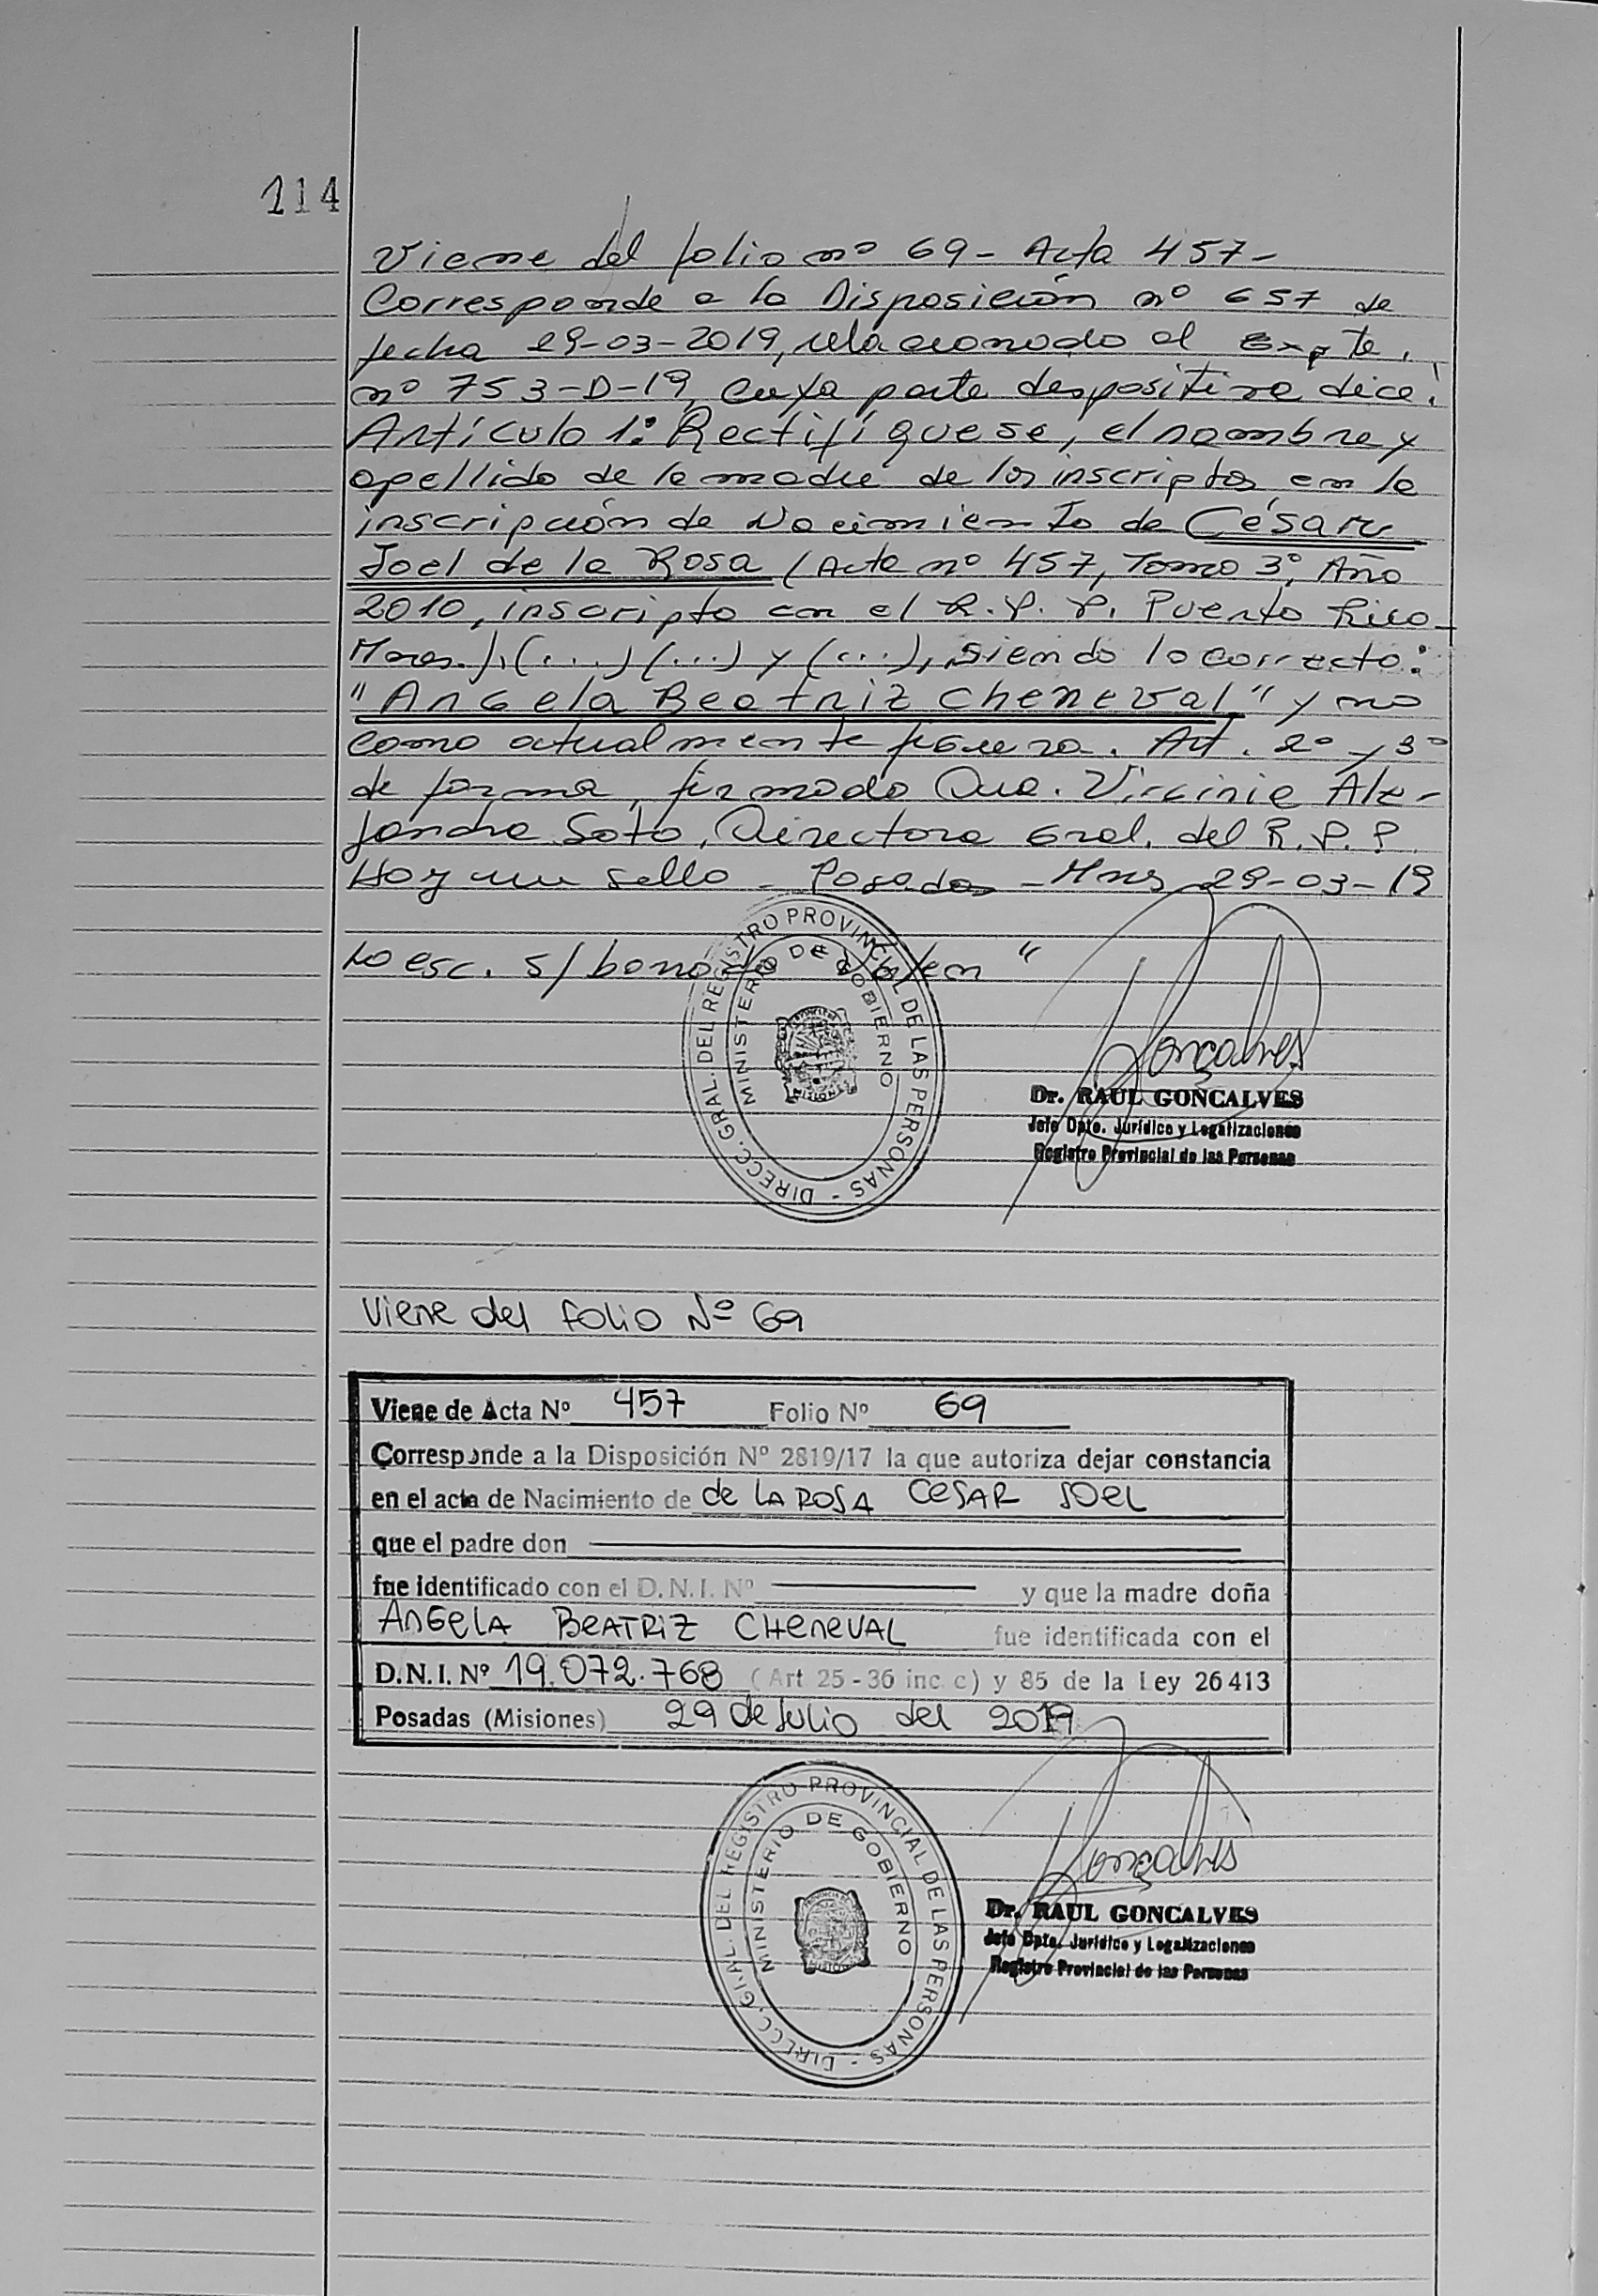 114
Viene del folio nº 69 - Acta 457 -
Corresponde a la Disposición nº 657 de
fecha 29-03-2019, relacionado al Expte.
nº 753-D-19, cuya parte despositiva dice:
Artículo 1: Rectifíquese, el nombre y
apellido de la madre de los inscriptos, en la
inscripción de Nacimiento de César
Joel de la Rosa (Acta nº 457, Tomo 3º, Año
2010, inscripto en el R.P.P. Puerto Rico -
Mnes.), (...) (...) y (...), siendo lo correcto:
"Angela Beatriz Cheneval" y no
como actualmente figura. Art. 2º y 3º
de forma, firmado Dra. Virginia Ale-
jandra Soto, Directora Gral. del R.P.P.
Hay un sello - Posadas - Mnes 29-03-19
Lo esc. s/ borrado Valen "
DIRECC. GRAL. DEL REGISTRO PROVINCIAL DE LAS PERSONAS -
MINISTERIO DE GOBIERNO
MISIONES
Goncalves
Dr. RAUL GONCALVES
Jefe Dpto. Jurídico y Legalizaciones
Registro Provincial de las Personas
Viene del folio Nº 69
Viene de Acta Nº 457 Folio Nº 69
Corresponde a la Disposición Nº 2819/17 la que autoriza dejar constancia
en el acta de Nacimiento de de LA ROSA CESAR JOEL
que el padre don
fue identificado con el D.N.I. Nº y que la madre doña
ANGELA BEATRIZ CHENEVAL fue identificada con el
D.N.I. Nº 19.072.768 (Art 25 - 36 inc. c) y 85 de la Ley 26413
Posadas (Misiones) 29 de Julio del 2019
DIRECC. GRAL. DEL REGISTRO PROVINCIAL DE LAS PERSONAS -
MINISTERIO DE GOBIERNO
Goncalves
Dr. RAUL GONCALVES
Jefe Dpto. Jurídico y Legalizaciones
Registro Provincial de las Personas